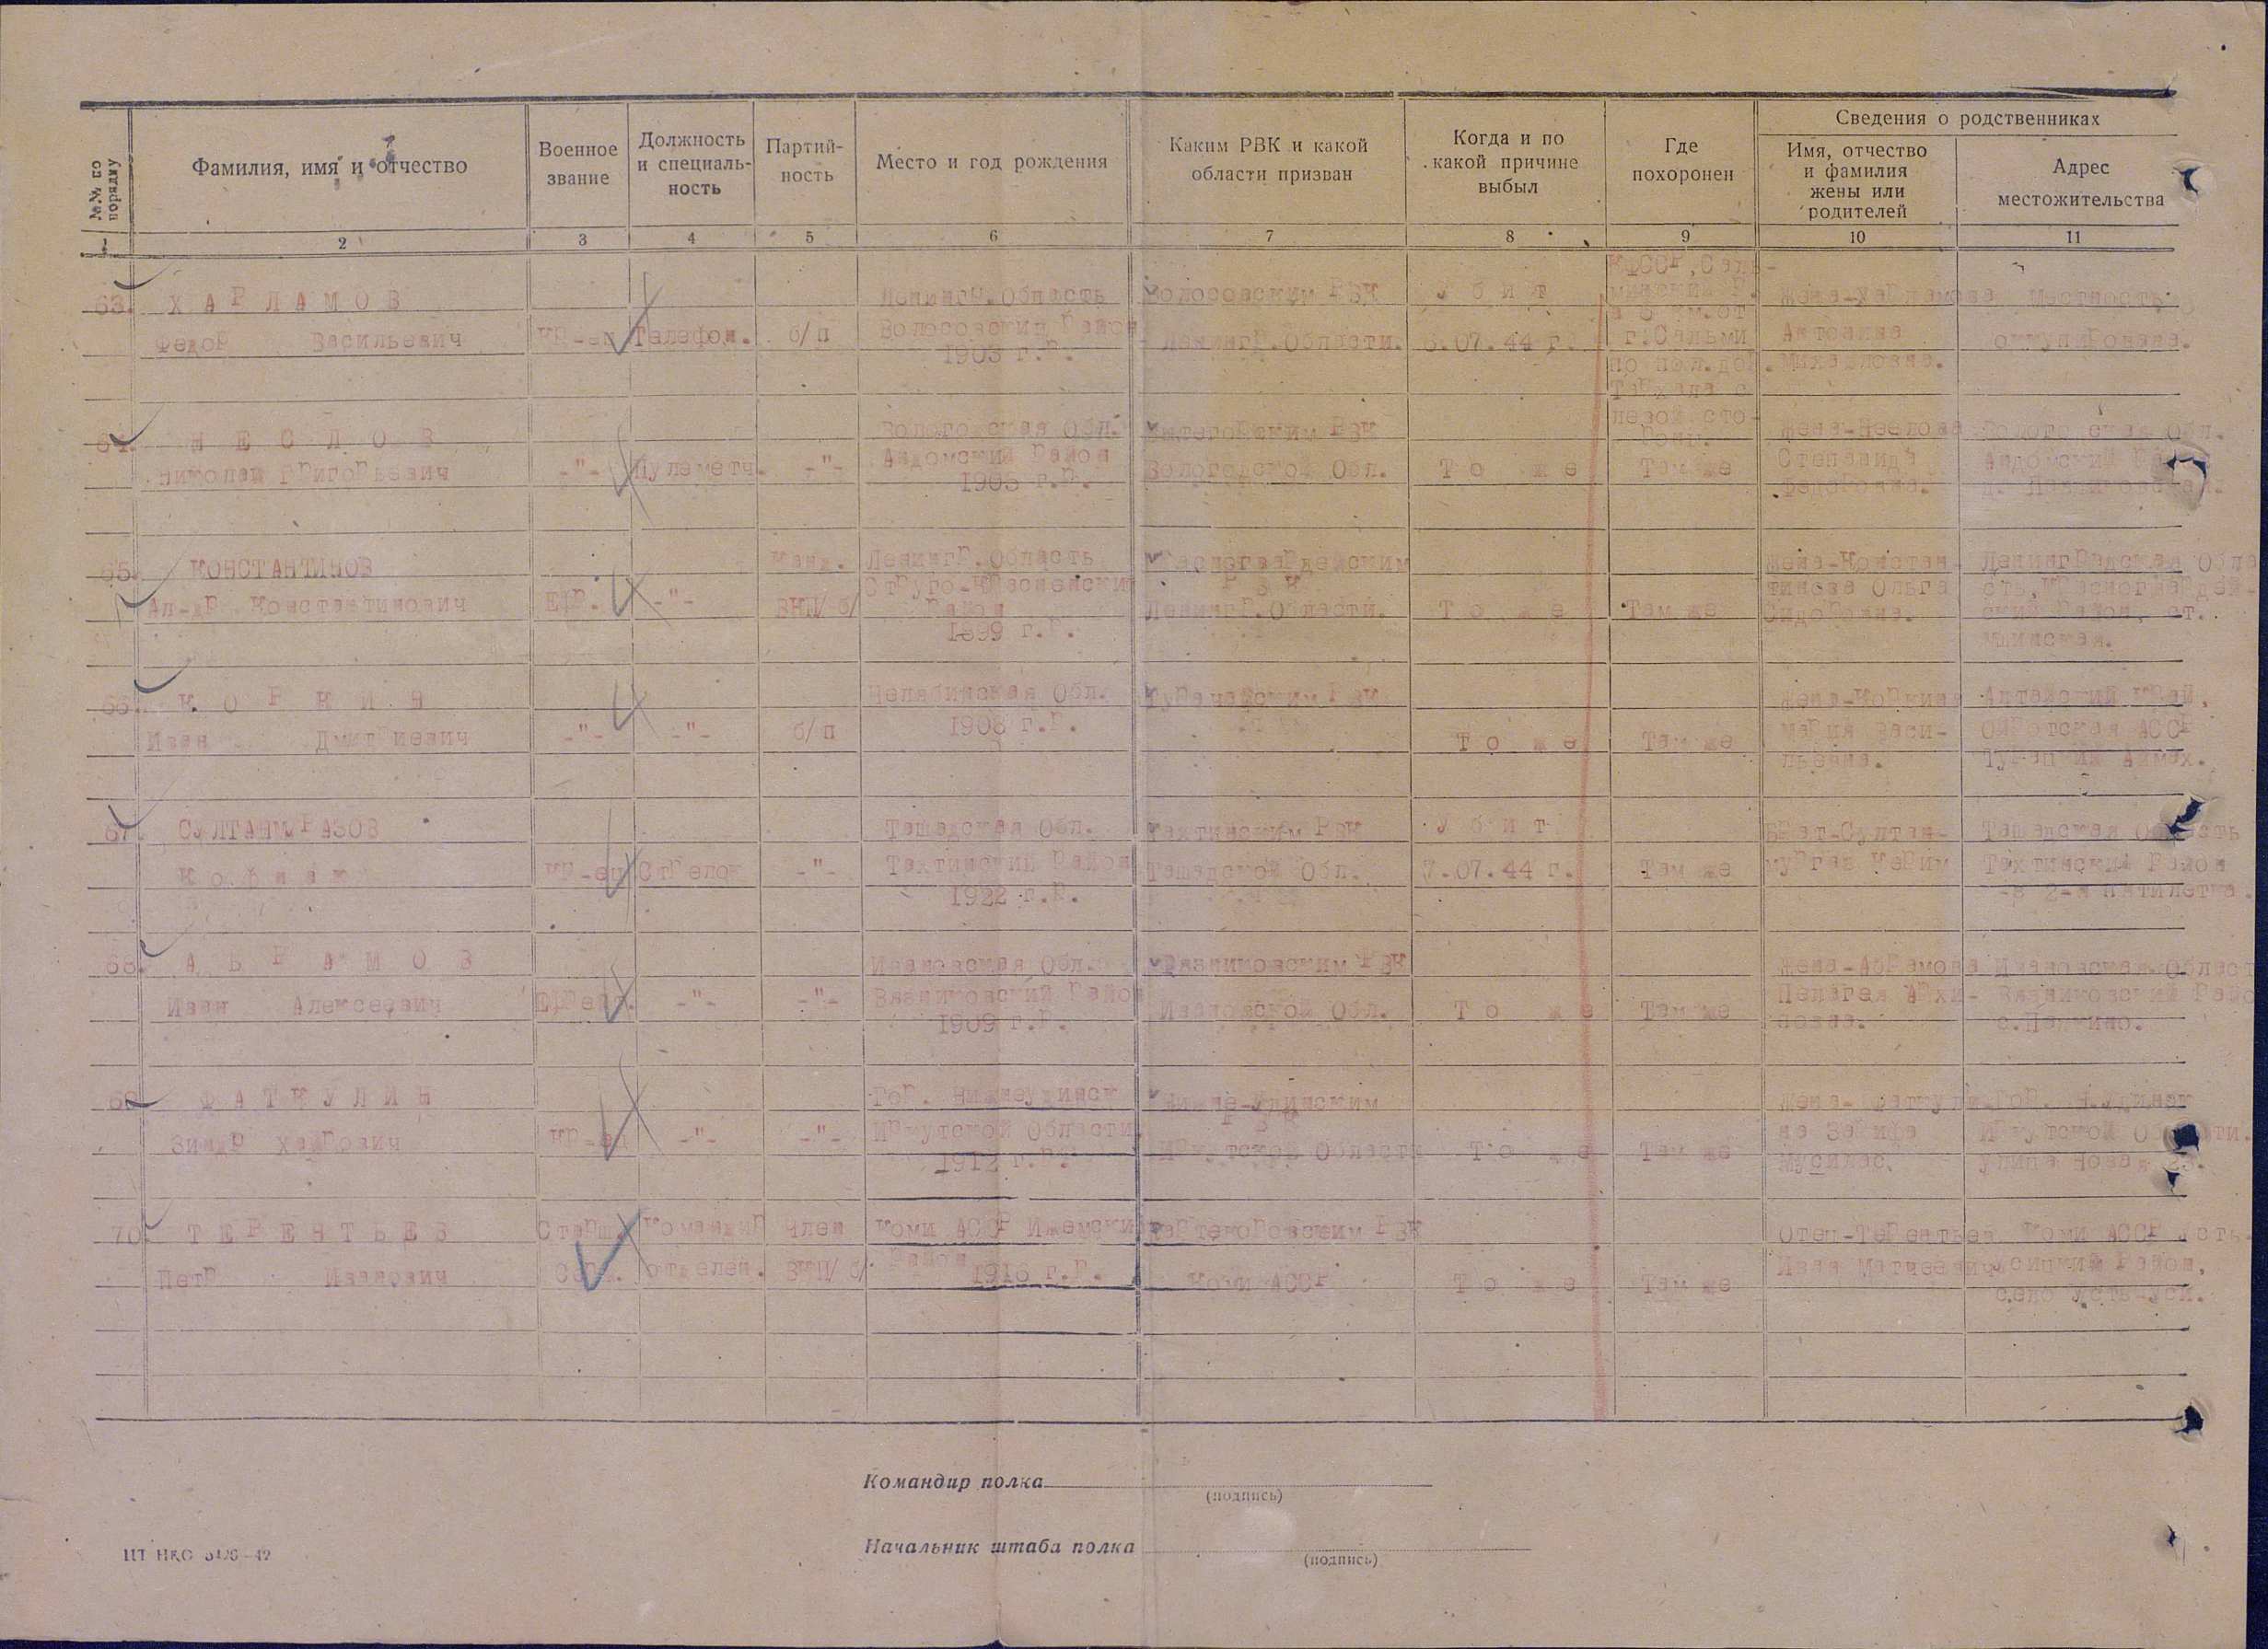 №№ по порядку
Фамилия, имя и отчество
Военное звание
Должность и специаль-ность
Партий-ность
Место и год рождения
Каким РВК и какой области призван
Когда и по какой причине выбыл
Где похоронен
Сведения о родственниках
Имя, отчество и фамилия жены или родителей
Адрес местожительства
1 2 3 4 5 6 7 8 9 10 11
63. ХАРЛАМОВ
Федор Васильевич
Кр-ец Телефон. б/п
Ленингр. Область
Волосовский район
1903 г.р.
Волосовским РВК
Ленингр. Области.
Убит
6.07.44 г.
КФССР, Саль-
минский р.
в 6 км. от
г. Сальми
по
Тархала с
левой сто-
роны.
Жена-Харламова
Антонина
Михайловна.
Местность
оккупирована.
64. НЕЕЛОВ
Николай Григорьевич
-"- Пулеметч. -"-
Вологодская Обл.
Андомский район
1905 г.р.
Вытегорским РВК
Вологодской Обл.
То же
Там же
Жена-Неелова
Степанида
Федоровна.
Вологодская Обл.
Андомский Район
65. КОНСТАНТИНОВ
Ал-др Константинович
Ефр. -"-
Канд.
ВКП/б/
Ленингр. Область
Струго-Красненский
Район
1899 г.р.
Красногвардейским
РВК
Ленингр. Области.
То же
Там же
Жена-Констан
тинова Ольга
Сидоровна.
Ленинградская Обла
сть, Красногвардей-
ский Район, ст.
Мшинская.
66. КОРКИН
Иван Дмитриевич
-"- -"- б/п
Челябинская Обл.
1908 г.р.
РВК
То же
Там же
Жена-Коркина
Мария Васи-
льевна.
Алтайский Край,
Ойротская АССР
Аймак.
67. СУЛТАНМУРАЗОВ
Кр-ец Стрелок -"-
Ташадская Обл.
Тахтинский Район
1922 г.р.
Тахтинским РВК
Ташадской Обл.
Убит
7.07.44 г.
Там же
Брат-Султан-
мурзаз Керим
Ташадская Область
Тахтинский Район
2-я пятилетка.
68. АБРАМОВ
Иван Алексеевич
Ефрейт. -"- -"-
Ивановская Обл.
Вязниковский Район
1909 г.р.
Вязниковским РВК
Ивановской Обл.
То же
Там же
Жена-Абрамова
Пелагея Архи-
повна.
Ивановская Област
Вязниковский Райо
69. ФАТКУЛИН
Кр-ец -"- -"-
Гор. Нижнеудинск
Иркутской Области
1912 г.р.
Нижне-Удинским
РВК
Иркутской Области
То же
Там же
Жена- Фаткули-
на
Гор. Н.Удинск
Иркутской Области.
улица Новая
70. ТЕРЕНТЬЕВ
Петр Иванович
Старш. Серж.
Командир отделен.
Член ВКП/б/
Коми АССР Ижемский
Район
1916 г.р.
РВК
Коми АССР
То же
Там же
Отец-Терентьев
Иван Матвеевич
Коми АССР Усть-
Усинский Район,
село Усть-Уса.
Командир полка
(подпись)
Начальник штаба полка
(подпись)